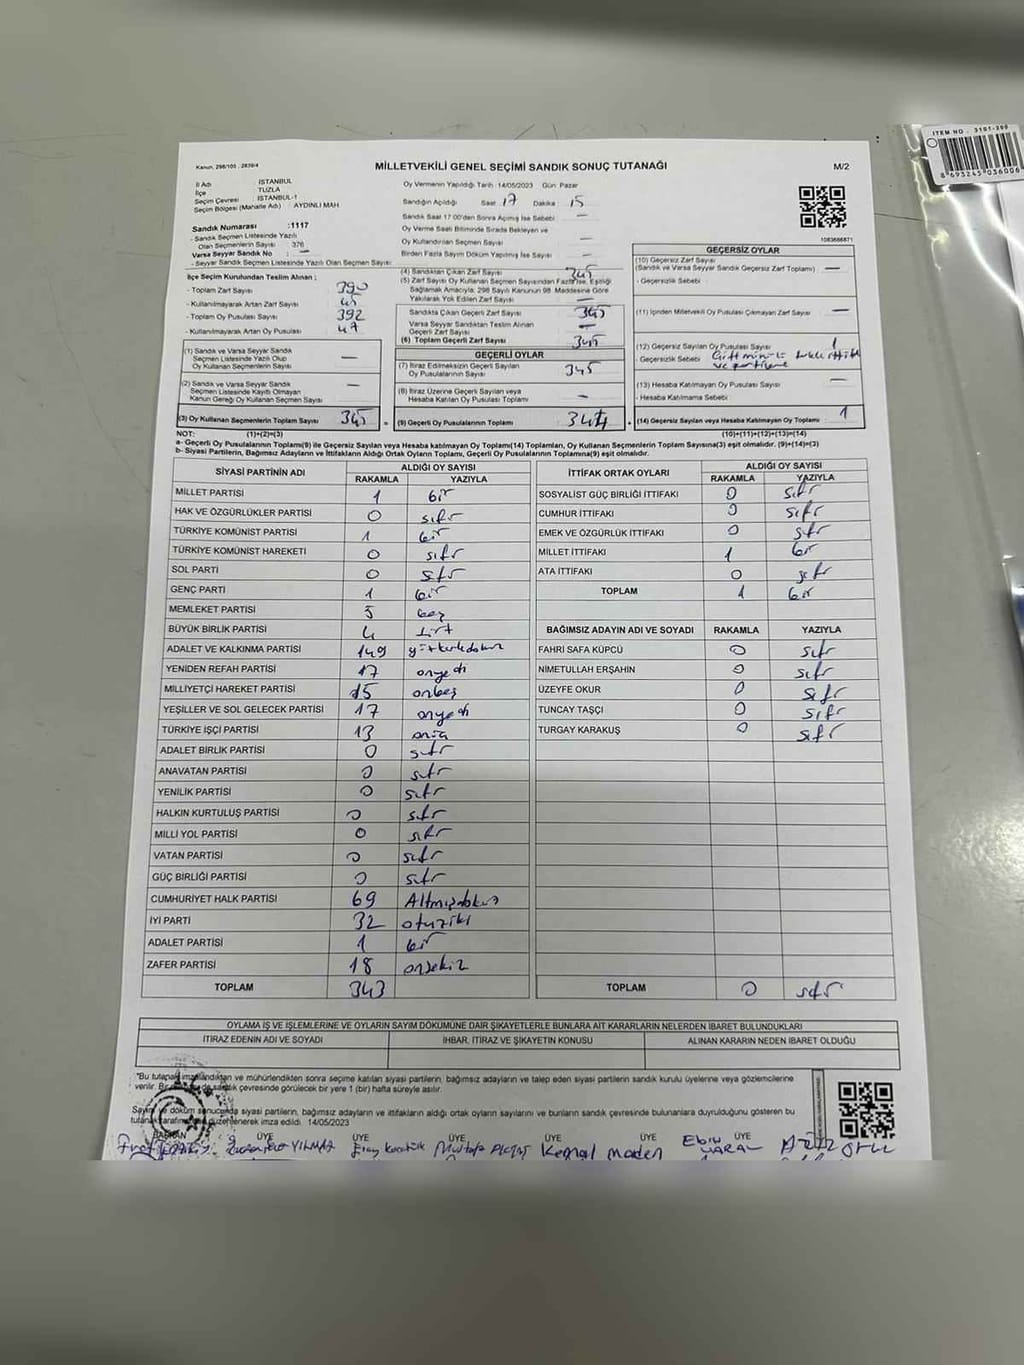 ITEM NO . 3101-200
8 693245 036006
Kanun, 298/105 , 2839/4
MİLLETVEKİLİ GENEL SEÇİMİ SANDIK SONUÇ TUTANAĞI
M/2
İl Adı İSTANBUL
İlçe TUZLA
Seçim Çevresi İSTANBUL-1
Seçim Bölgesi (Mahalle Adı) : AYDINLI MAH
Oy Vermenin Yapıldığı Tarih :14/05/2023 Gün: Pazar
Sandığın Açıldığı Saat 17 Dakika 15
Sandık Saat 17:00'den Sonra Açılmış İse Sebebi —
Oy Verme Saati Bitiminde Sırada Bekleyen ve
Oy Kullandırılan Seçmen Sayısı —
Birden Fazla Sayım Döküm Yapılmış İse Sayısı —
1083686871
Sandık Numarası :1117
- Sandık Seçmen Listesinde Yazılı
Olan Seçmenlerin Sayısı : 376
Varsa Seyyar Sandık No : —
- Seyyar Sandık Seçmen Listesinde Yazılı Olan Seçmen Sayısı:
İlçe Seçim Kurulundan Teslim Alınan ;
- Toplam Zarf Sayısı 390
- Kullanılmayarak Artan Zarf Sayısı 45
- Toplam Oy Pusulası Sayısı 392
- Kullanılmayarak Artan Oy Pusulası 47
(1) Sandık ve Varsa Seyyar Sandık
Seçmen Listesinde Yazılı Olup
Oy Kullanan Seçmenlerin Sayısı —
(2) Sandık ve Varsa Seyyar Sandık
Seçmen Listesinde Kaydı Olmayan
Kanun Gereği Oy Kullanan Seçmen Sayısı —
(3) Oy Kullanan Seçmenlerin Toplam Sayısı 345
(4) Sandıktan Çıkan Zarf Sayısı 345
(5) Zarf Sayısı Oy Kullanan Seçmen Sayısından Fazla İse, Eşitliği
Sağlamak Amacıyla; 298 Sayılı Kanunun 98. Maddesine Göre
Yakılarak Yok Edilen Zarf Sayısı —
Sandıkta Çıkan Geçerli Zarf Sayısı 345
Varsa Seyyar Sandıktan Teslim Alınan
Geçerli Zarf Sayısı —
(6) Toplam Geçerli Zarf Sayısı 345
GEÇERLİ OYLAR
(7) İtiraz Edilmeksizin Geçerli Sayılan
Oy Pusulalarının Sayısı 345
(8) İtiraz Üzerine Geçerli Sayılan veya
Hesaba Katılan Oy Pusulası Toplamı —
(9) Geçerli Oy Pusulalarının Toplamı 344
GEÇERSİZ OYLAR
(10) Geçersiz Zarf Sayısı
(Sandık ve Varsa Seyyar Sandık Geçersiz Zarf Toplamı) —
- Geçersizlik Sebebi
(11) İçinden Milletvekili Oy Pusulası Çıkmayan Zarf Sayısı —
(12) Geçersiz Sayılan Oy Pusulası Sayısı 1
- Geçersizlik Sebebi
ve partiye
(13) Hesaba Katılmayan Oy Pusulası Sayısı —
- Hesaba Katılmama Sebebi
(14) Geçersiz Sayılan veya Hesaba Katılmayan Oy Toplamı 1
NOT: (1)+(2)=(3) (10)+(11)+(12)+(13)=(14)
a- Geçerli Oy Pusulalarının Toplamı(9) ile Geçersiz Sayılan veya Hesaba Katılmayan Oy Toplamı(14) Toplamları, Oy Kullanan Seçmenlerin Toplam Sayısına(3) eşit olmalıdır. (9)+(14)=(3)
b- Siyasi Partilerin, Bağımsız Adayların ve İttifakların Aldığı Ortak Oyların Toplamı, Geçerli Oy Pusulalarının Toplamına(9) eşit olmalıdır.
SİYASİ PARTİNİN ADI ALDIĞI OY SAYISI
RAKAMLA YAZIYLA
MİLLET PARTİSİ 1 bir
HAK VE ÖZGÜRLÜKLER PARTİSİ 0 sıfır
TÜRKİYE KOMÜNİST PARTİSİ 1 bir
TÜRKİYE KOMÜNİST HAREKETİ 0 sıfır
SOL PARTİ 0 sıfır
GENÇ PARTİ 1 bir
MEMLEKET PARTİSİ 5 beş
BÜYÜK BİRLİK PARTİSİ 4 dört
ADALET VE KALKINMA PARTİSİ 149 yüzkırkdokuz
YENİDEN REFAH PARTİSİ 17 onyedi
MİLLİYETÇİ HAREKET PARTİSİ 15 onbeş
YEŞİLLER VE SOL GELECEK PARTİSİ 17 onyedi
TÜRKİYE İŞÇİ PARTİSİ 13 onüç
ADALET BİRLİK PARTİSİ 0 sıfır
ANAVATAN PARTİSİ 0 sıfır
YENİLİK PARTİSİ 0 sıfır
HALKIN KURTULUŞ PARTİSİ 0 sıfır
MİLLİ YOL PARTİSİ 0 sıfır
VATAN PARTİSİ 0 sıfır
GÜÇ BİRLİĞİ PARTİSİ 0 sıfır
CUMHURİYET HALK PARTİSİ 69 Altmışdokuz
İYİ PARTİ 32 otuziki
ADALET PARTİSİ 1 bir
ZAFER PARTİSİ 18 onsekiz
TOPLAM 343
İTTİFAK ORTAK OYLARI ALDIĞI OY SAYISI
RAKAMLA YAZIYLA
SOSYALİST GÜÇ BİRLİĞİ İTTİFAKI 0 sıfır
CUMHUR İTTİFAKI 0 sıfır
EMEK VE ÖZGÜRLÜK İTTİFAKI 0 sıfır
MİLLET İTTİFAKI 1 bir
ATA İTTİFAKI 0 sıfır
TOPLAM 1 bir
BAĞIMSIZ ADAYIN ADI VE SOYADI RAKAMLA YAZIYLA
FAHRİ SAFA KÜPCÜ 0 sıfır
NİMETULLAH ERŞAHİN 0 sıfır
ÜZEYFE OKUR 0 sıfır
TUNCAY TAŞÇI 0 sıfır
TURGAY KARAKUŞ 0 sıfır
TOPLAM 0 sıfır
OYLAMA İŞ VE İŞLEMLERİNE VE OYLARIN SAYIM DÖKÜMÜNE DAİR ŞİKAYETLERLE BUNLARA AİT KARARLARIN NELERDEN İBARET BULUNDUKLARI
İTİRAZ EDENİN ADI VE SOYADI İHBAR, İTİRAZ VE ŞİKAYETİN KONUSU ALINAN KARARIN NEDEN İBARET OLDUĞU
"Bu tutanak imzalandıktan ve mühürlendikten sonra seçime katılan siyasi partilerin, bağımsız adayların ve talep eden siyasi partilerin sandık kurulu üyelerine veya gözlemcilerine
verilir. Bir sandık çevresinde görülecek bir yere 1 (bir) hafta süreyle asılır.
Sayım ve döküm sonucunda siyasi partilerin, bağımsız adayların ve ittifakların aldığı ortak oyların sayılarını ve bunların sandık çevresinde bulunanlara duyrulduğunu gösteren bu
tutanak tarafımızca düzenlenerek imza edildi. 14/05/2023
BAŞKAN ÜYE ÜYE ÜYE ÜYE ÜYE
YILMAZ Mustafa Kemal maden